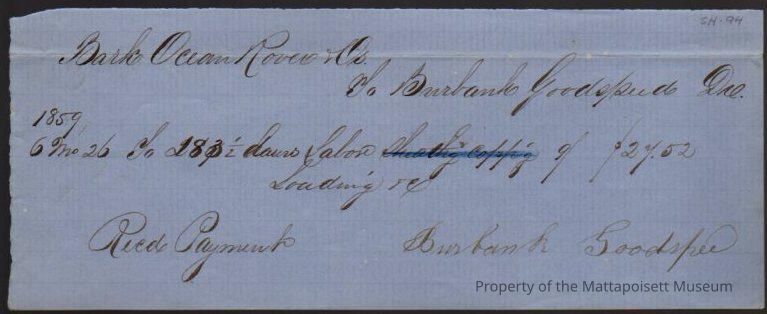 SH-94
Bark Ocean Rover & Os.
To Burbank Goodspeed Dr.
1859
6 Mo 26 To 183½ hours Labor @/ $27.52
Loading &c
Recd Payment
Burbank Goodspee
Property of the Mattapoisett Museum